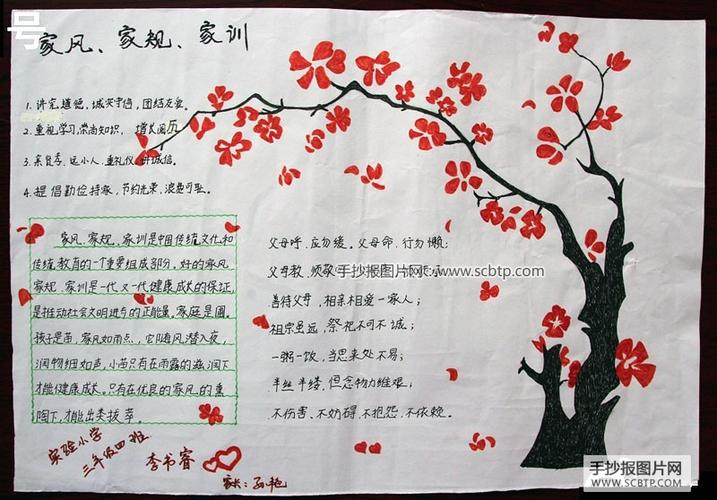 号
家风、家规、家训
1. 讲究道德，诚实守信，团结友爱。
2. 重视学习，崇尚知识，增长阅历
3. 亲贤孝，远小人，重礼仪，讲诚信。
4. 提倡勤俭持家，节约光荣，浪费可耻。
家风、家规、家训是中国传统文化和
传统教育的一个重要组成部分。好的家风
家规、家训是一代又一代健康成长的保证
是推动社会文明进步的正能量。家庭是圃，
孩子是苗，家风如雨点，它随风潜入夜，
润物细如声，小苗只有在雨露的滋润下
才能健康成长。只有在优良的家风的熏
陶下，才能出类拔萃。
父母呼，应勿缓，父母命，行勿懒；
父母教，须敬 顺承
手抄报图片网 www.scbtp.com
善待父母，相亲相爱一家人；
祖宗虽远，祭祀不可不诚；
一粥一饭，当思来处不易；
半丝半缕，但念物力维艰；
不伤害、不妨碍、不抱怨、不依赖。
实验小学
三年级四班
李书睿
家长：孙艳
手抄报图片网
WWW.SCBTP.COM